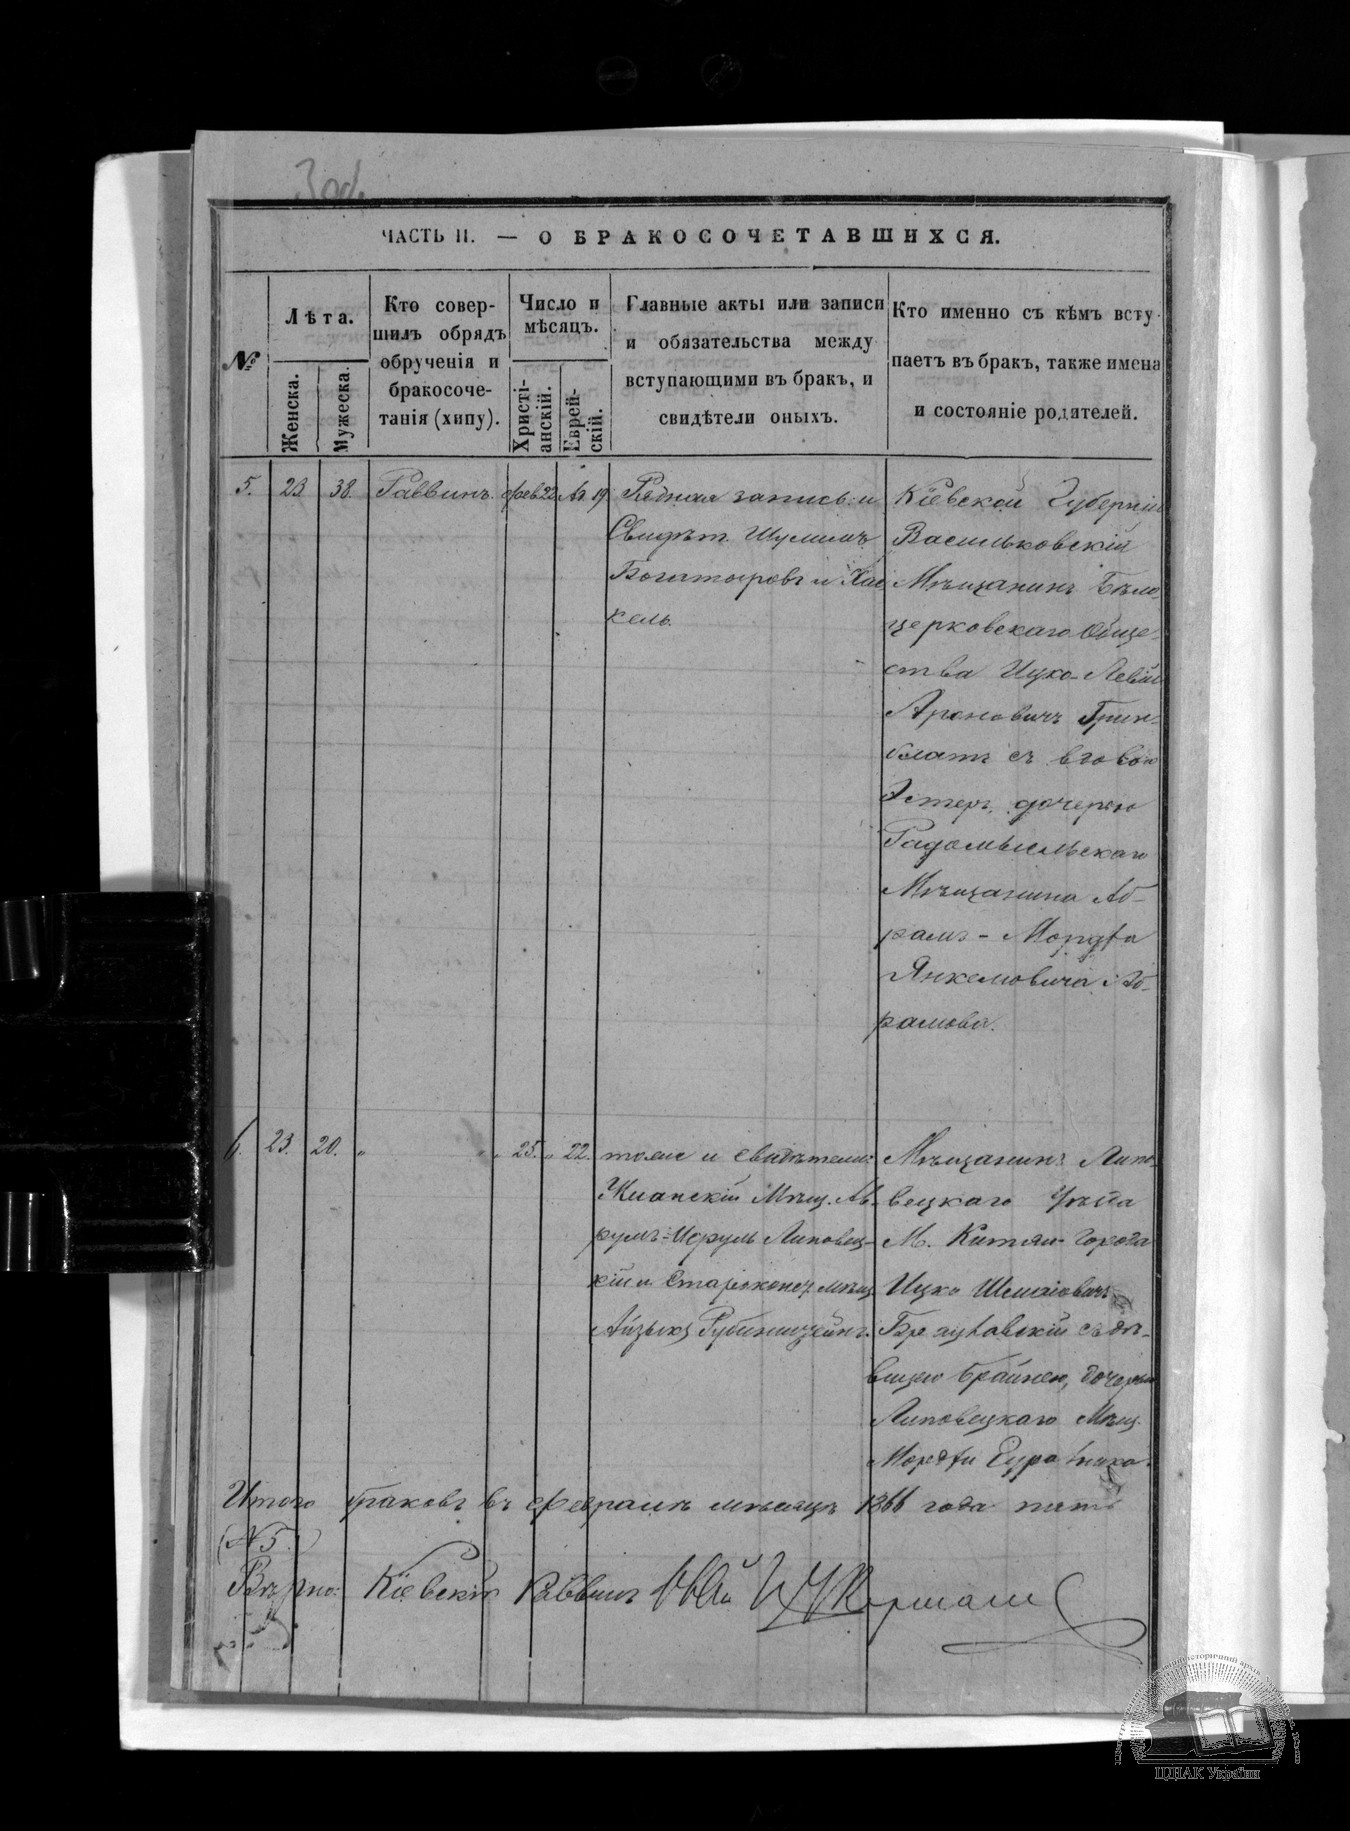 3 об.
ЧАСТЬ II. — О БРАКОСОЧЕТАВШИХСЯ.
№
Лѣта.
Женска.
Мужеска.
Кто совер-
шилъ обрядъ
обрученія и
бракосоче-
танія (хипу).
Число и
мѣсяцъ.
Христі-
анскій.
Еврей-
скій.
Главные акты или записи
и обязательства между
вступающими въ бракъ, и
свидѣтели оныхъ.
Кто именно съ кѣмъ всту-
паетъ въ бракъ, также имена
и состояніе родителей.
5. 23 38. Раввинъ. фев. 22 Ад. 19
Рядная запись и
Свидѣт. Шулимъ
Богатыровъ и Хас
кель.
Кіевской Губерніи
Васильковскій
Мѣщанинъ Бѣло-
церковскаго Обще-
ства Ицко-Левій
Ароновичъ Грин-
блатъ съ вдовою
Эстеръ, дочерью
Радомысльскаго
Мѣщанина Аб-
рамъ-Мордка
Янкелевича Аб-
рамова.
6. 23. 20. „ „ „ 25. „ 22.
тоже и свидѣтели:
Мѣщ. Аб-
румъ-Исруль Липовец-
кій и Старокон. мѣщ.
Айзыкъ Рубинштейнъ.
Мѣщанинъ Липо-
вецкаго Уѣзда
М. Китай-Города
Ицко
съ дѣ-
вицею Брайнею, дочерью
Липовецкаго Мѣщ.
Мордки
Итого браковъ въ Февралѣ мѣсяцѣ 1866 года пять
(№ 5.)
Вѣрно: Кіевскій Раввинъ Цукерманъ
ЦДІАК України